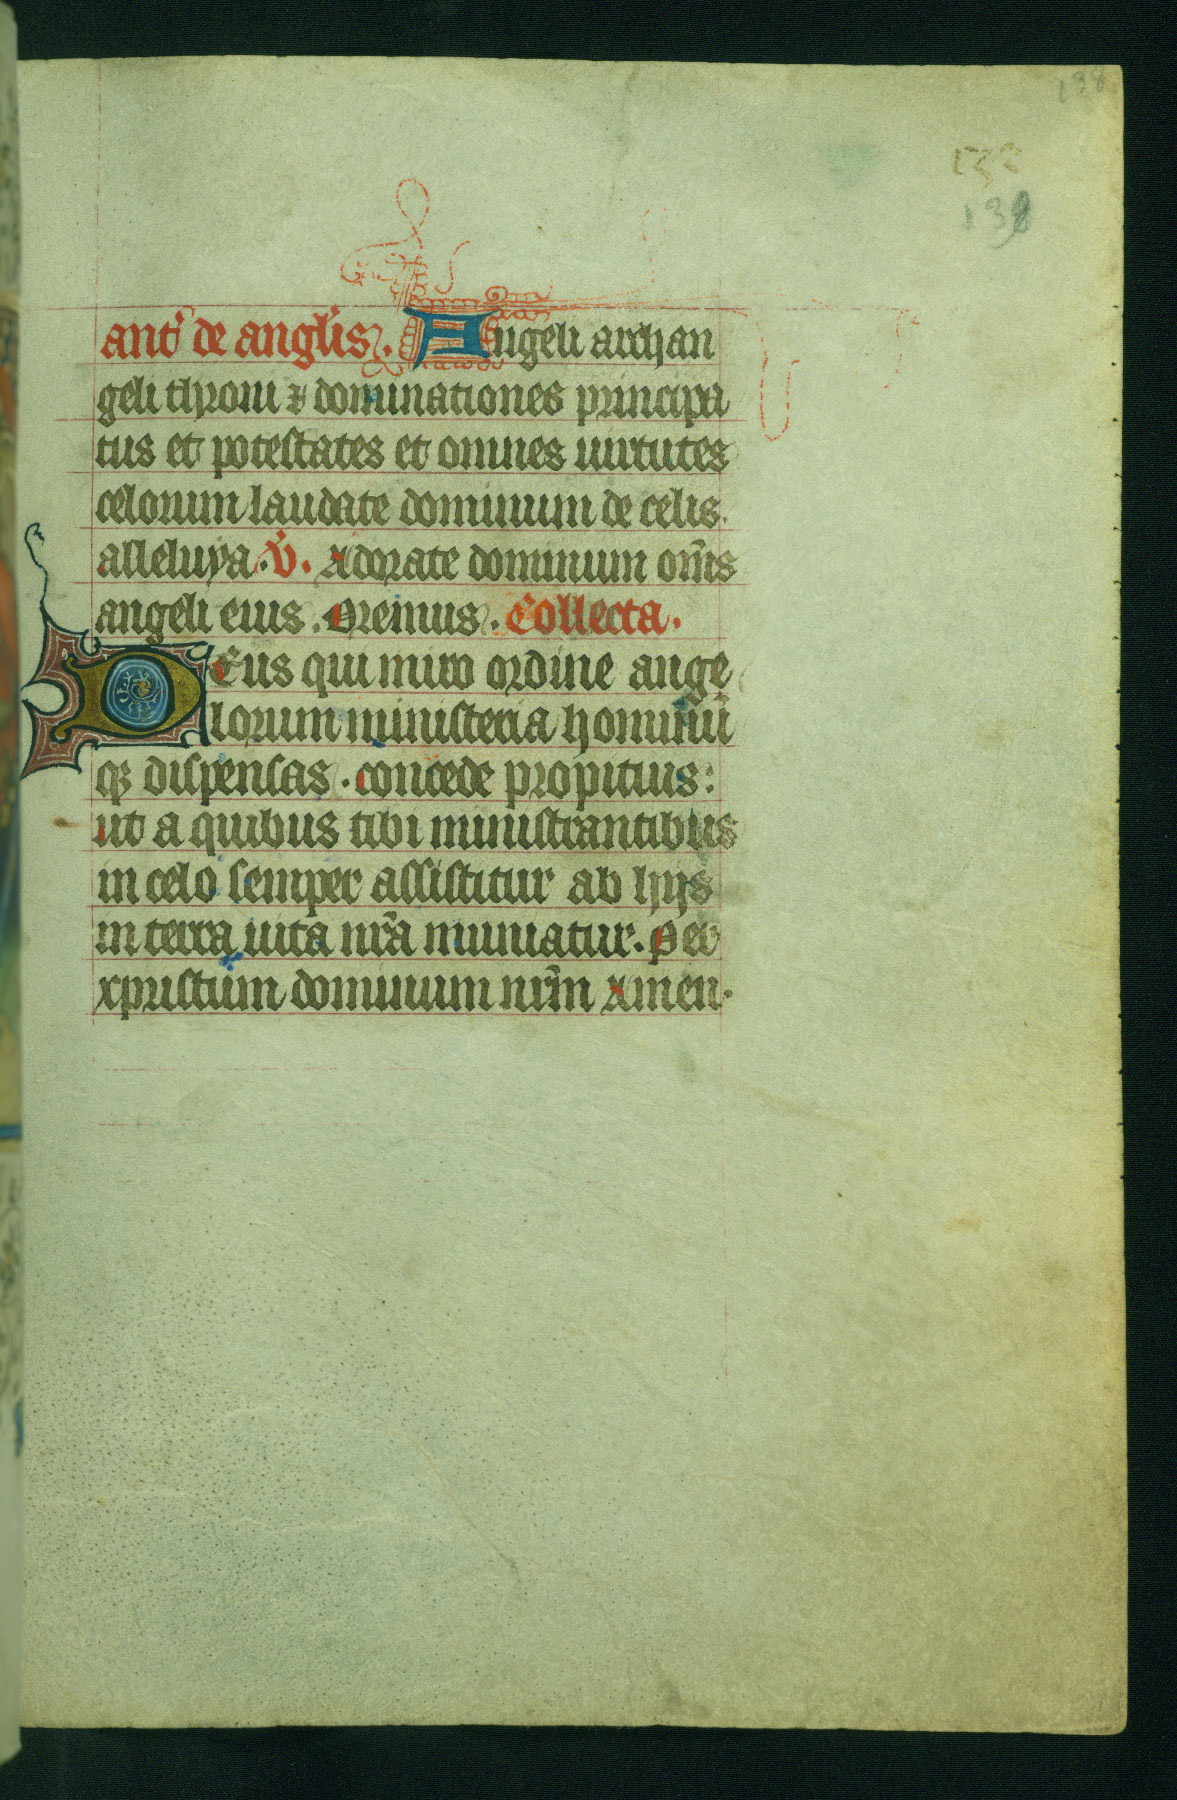 138
132
138
ant' de angl'is. Angeli archan
geli throni ⁊ dominationes principa
tus et potestates et omnes uirtutes
celorum laudate dominum de celis.
alleluya. V̄. Adorate dominum om̄s
angeli eius. Oremus. Collecta.
DEus qui miro ordine ange
lorum ministeria hominū
qꝫ dispensas. concede propitius:
ut a quibus tibi ministrantibus
in celo semper assistitur ab hijs
in terra uita nr̄a muniatur. Per
xpristum dominum nr̄m Amen.